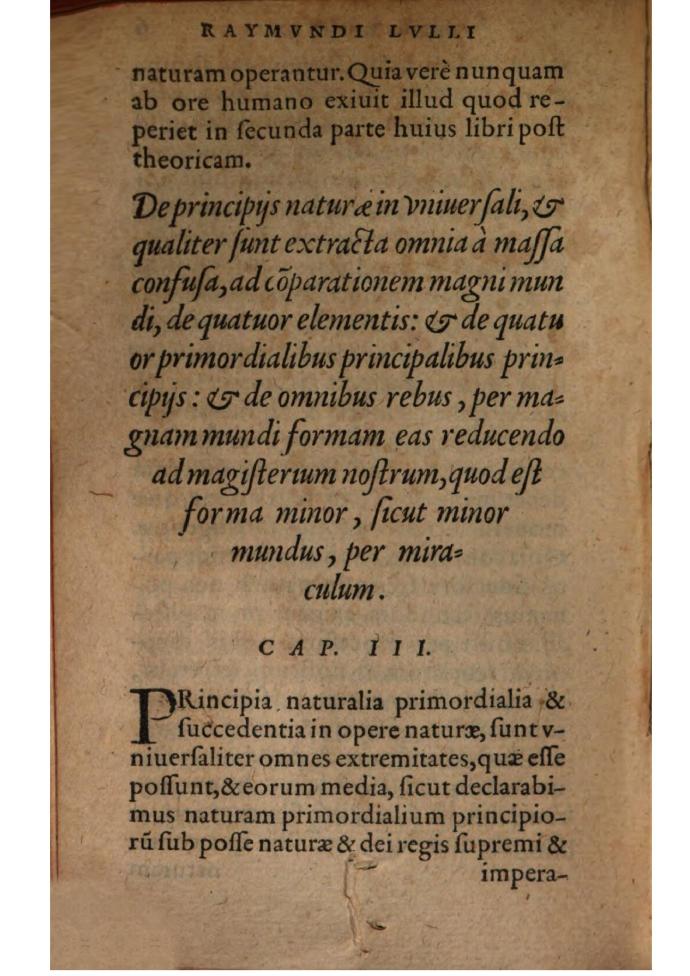 RAYMVNDI LVLLI
naturam operantur. Quia verè nunquam
ab ore humano exiuit illud quod re-
periet in ſecunda parte huius libri poſt
theoricam.
De principijs naturæ in vniuerſali, &
qualiter ſunt extracta omnia à maſſa
confuſa, ad cõparationem magni mun
di, de quatuor elementis: & de quatu
or primordialibus principalibus prin-
cipijs: & de omnibus rebus, per ma-
gnam mundi formam eas reducendo
ad magiſterium noſtrum, quod eſt
forma minor, ſicut minor
mundus, per mira-
culum.
CAP. III.
PRincipia naturalia primordialia &
ſuccedentia in opere naturæ, ſunt v-
niuerſaliter omnes extremitates, quæ eſſe
poſſunt, & eorum media, ſicut declarabi-
mus naturam primordialium principio-
rũ ſub poſſe naturæ & dei regis ſupremi &
impera-